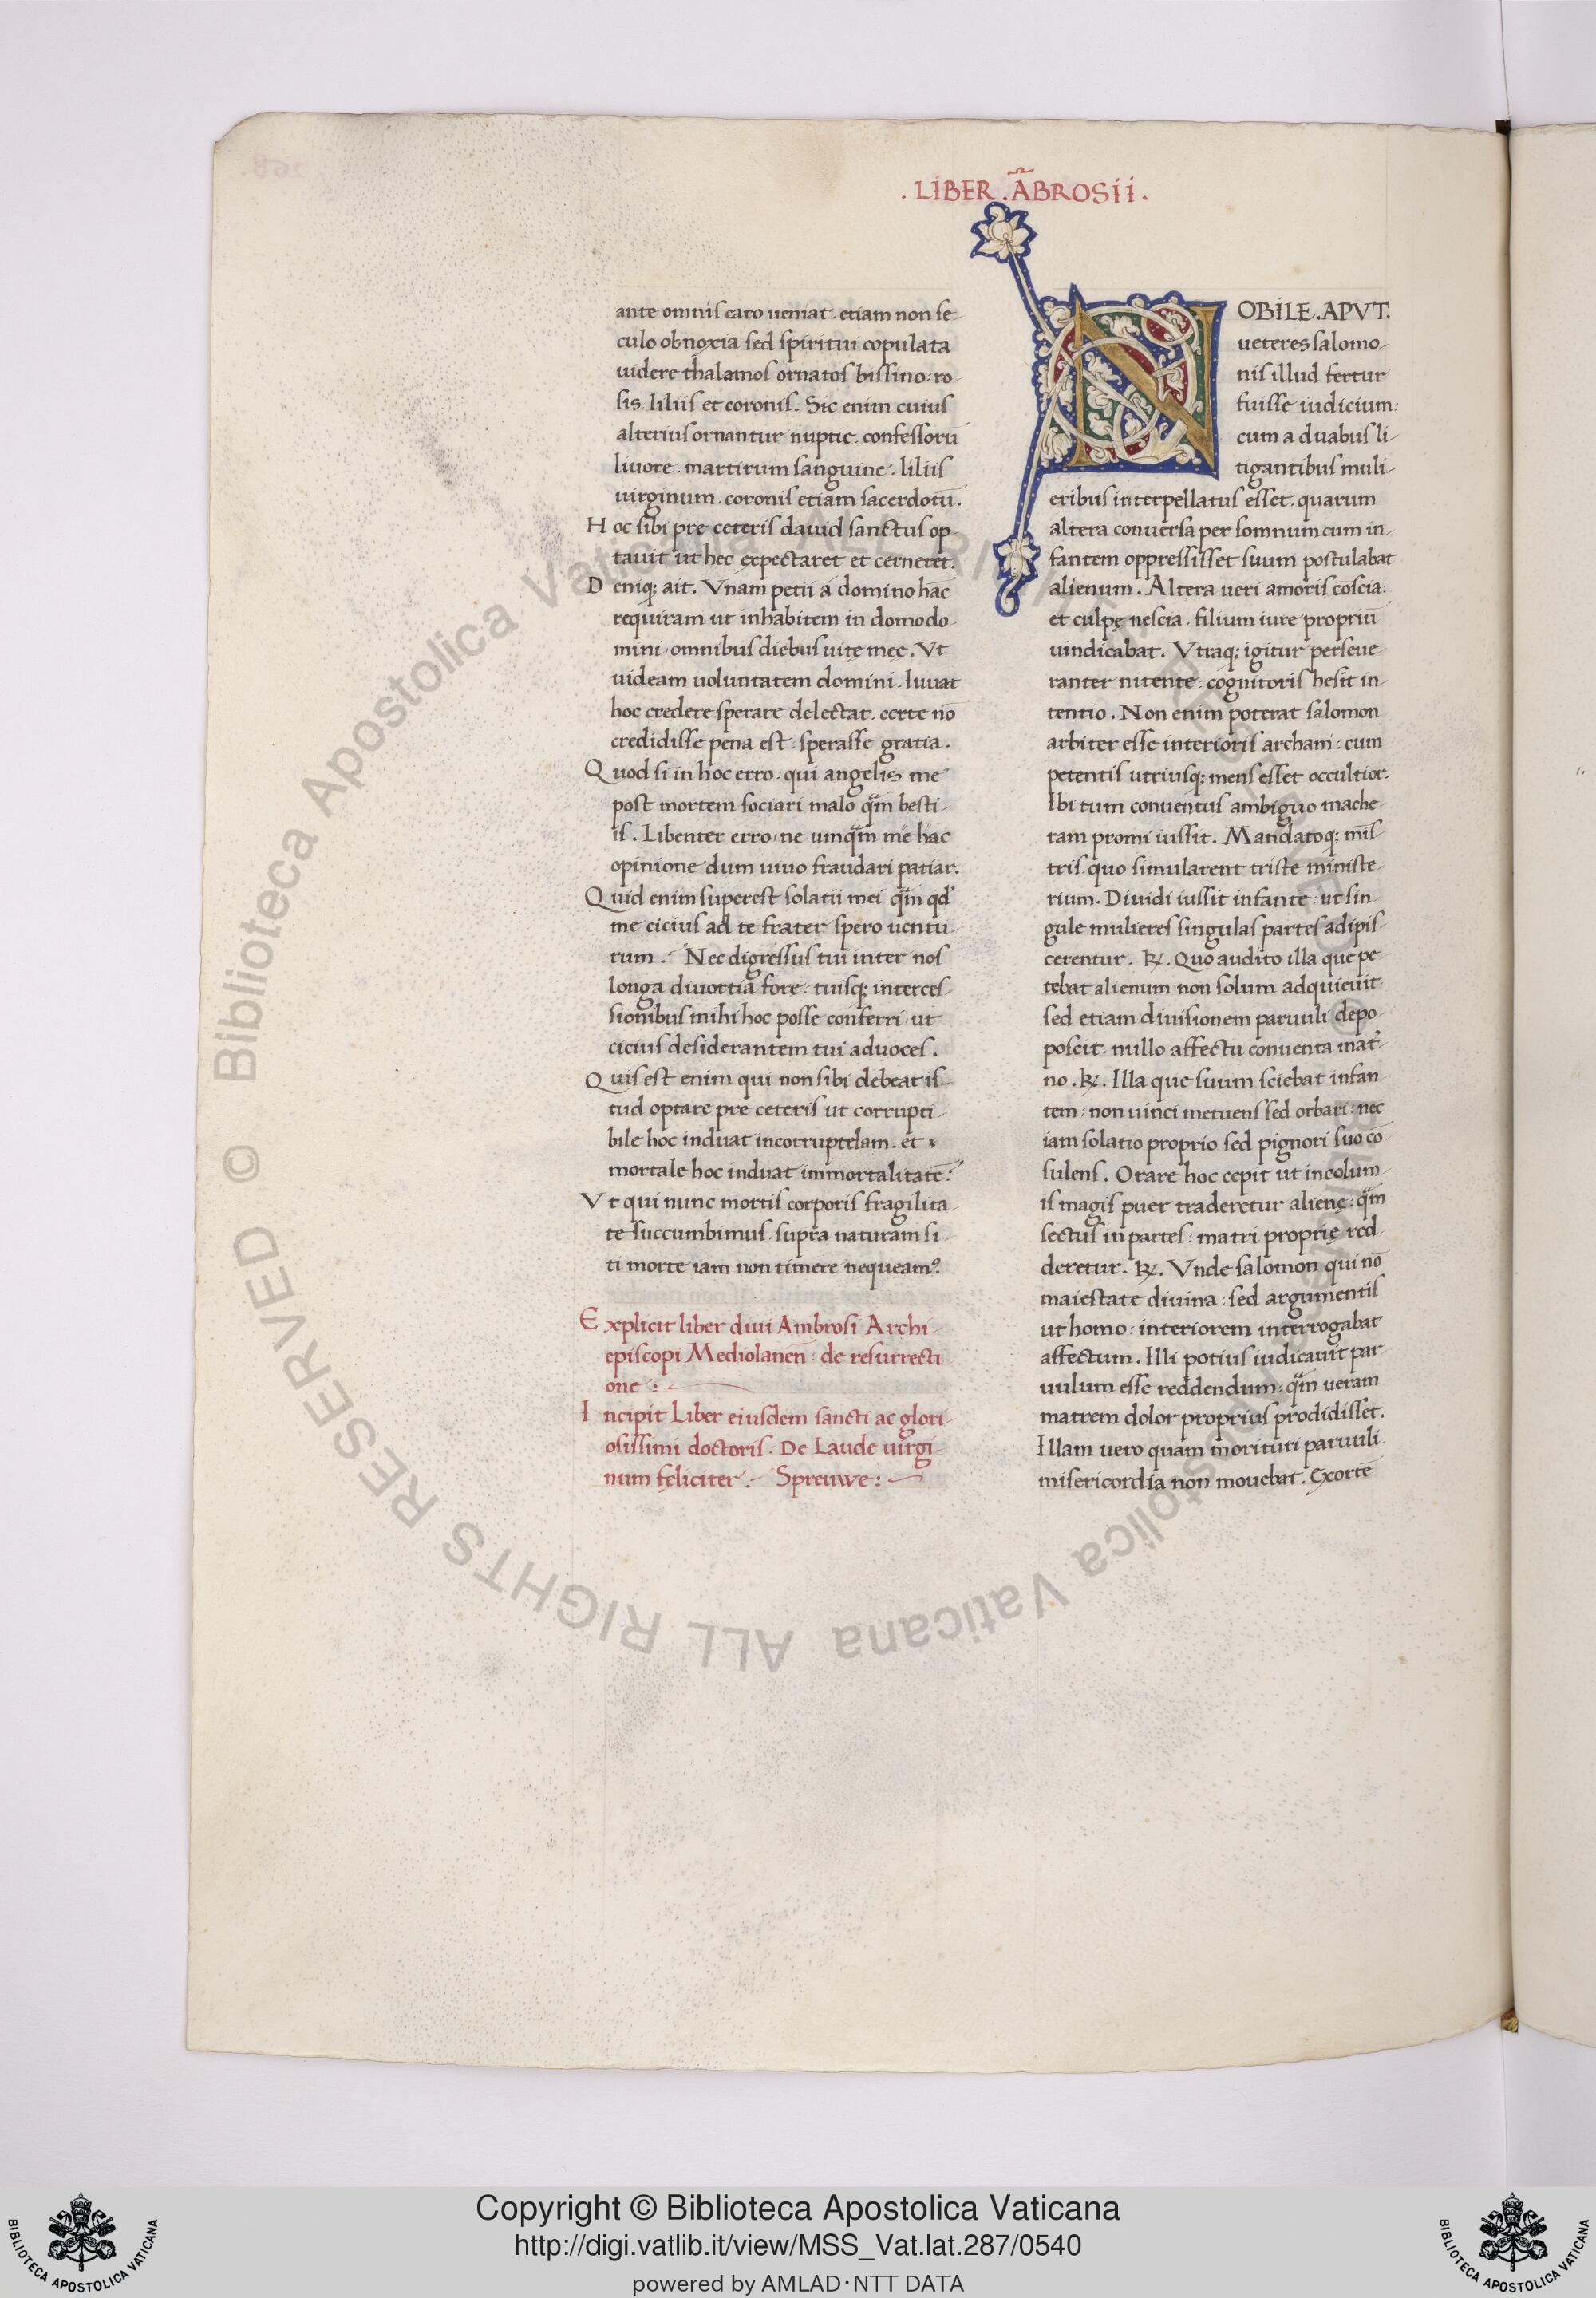 .LIBER.ÃBROSII.
ante omnis caro ueniat. etiam non se-
culo obnoxia sed spiritui copulata
uidere thalamos ornatos bissino. ro-
sis. liliis et coronis. Sic enim cuius
alterius ornantur nuptie. confessorū
liuore. martirum sanguine. liliis
uirginum. coronis etiam sacerdotū.
Hoc sibi pre ceteris dauid sanctus op-
tauit ut hec expectaret et cerneret.
Deniq; ait. Vnam petii a domino hāc
requiram ut inhabitem in domo do-
mini omnibus diebus uitę meę. Vt
uideam uoluntatem domini. Iuuat
hoc credere sperare delectat. certe nō
credidisse pena est. sperasse gratia.
Quod si in hoc erro. qui angelis me
post mortem sociari malo q̄m besti-
is. Libenter erro ne umq̄m me hac
opinione dum uiuo fraudari patiar.
Quid enim superest solatii mei q̄m qd'
me cicius ad te frater spero uentu-
rum. Nec digressus tui inter nos
longa diuortia fore. tuisq; interces-
sionibus mihi hoc posse conferri ut
cicius desiderantem tui aduoces.
Quis est enim qui non sibi debeat is-
tud optare pre ceteris ut corrupti-
bile hoc induat incorruptelam. et
mortale hoc induat immortalitatē:
Vt qui nunc mortis corporis fragilita-
te succumbimus. supra naturam si-
ti morte iam non timere nequeam⁹.
Explicit liber diui Ambrosi Archi-
episcopi Mediolanen̄: de resurrecti
one :
Incipit Liber eiusdem sancti ac glori-
osissimi doctoris. De Laude uirgi-
num feliciter. Spreuwe:
NOBILE.APVT.
ueteres salomo-
nis illud fertur
fuisse iudicium:
cum a duabus li-
tigantibus muli-
eribus interpellatus esset. quarum
altera conuersa per somnum cum in-
fantem oppressisset suum postulabat
alienum. Altera ueri amoris cōscia:
et culpę nescia. filium iure propriū
uindicabat. Vtraq; igitur perseue-
ranter nitente. cognitoris hesit in-
tentio. Non enim poterat salomon
arbiter esse interioris archani: cum
petentis utriusq; mens esset occultior.
Ibi tum conuentus ambiguo mache-
ram promi iussit. Mandatoq; mīs-
tris. quo simularent triste ministe-
rium. Diuidi iussit infantē. ut sin-
gule mulieres singulas partes adipis-
cerentur. ℞. Quo audito illa que pe-
tebat alienum non solum adquieuit
sed etiam diuisionem paruuli depo-
poscit. nullo affectu conuenta mat'-
no. ℞. Illa que suum sciebat infan-
tem: non uinci metuens sed orbari: nec
iam solatio proprio sed pignori suo cō-
sulens. Orare hoc cepit ut incolum-
is magis puer traderetur alienę: q̄m
sectus in partes: matri proprię red-
deretur. ℞. Vnde salomon qui nō
maiestate diuina: sed argumentis
ut homo: interiorem interrogabat
affectum. Illi potius iudicauit par-
uulum esse reddendum. q̄m ueram
matrem dolor proprius prodidisset.
Illam uero quam morituri paruuli.
misericordia non mouebat. Exortē
Copyright © Biblioteca Apostolica Vaticana
http://digi.vatlib.it/view/MSS_Vat.lat.287/0540
powered by AMLAD·NTT DATA
BIBLIOTECA APOSTOLICA VATICANA
BIBLIOTECA APOSTOLICA VATICANA
© Biblioteca Apostolica Vaticana ALL RIGHTS RESERVED